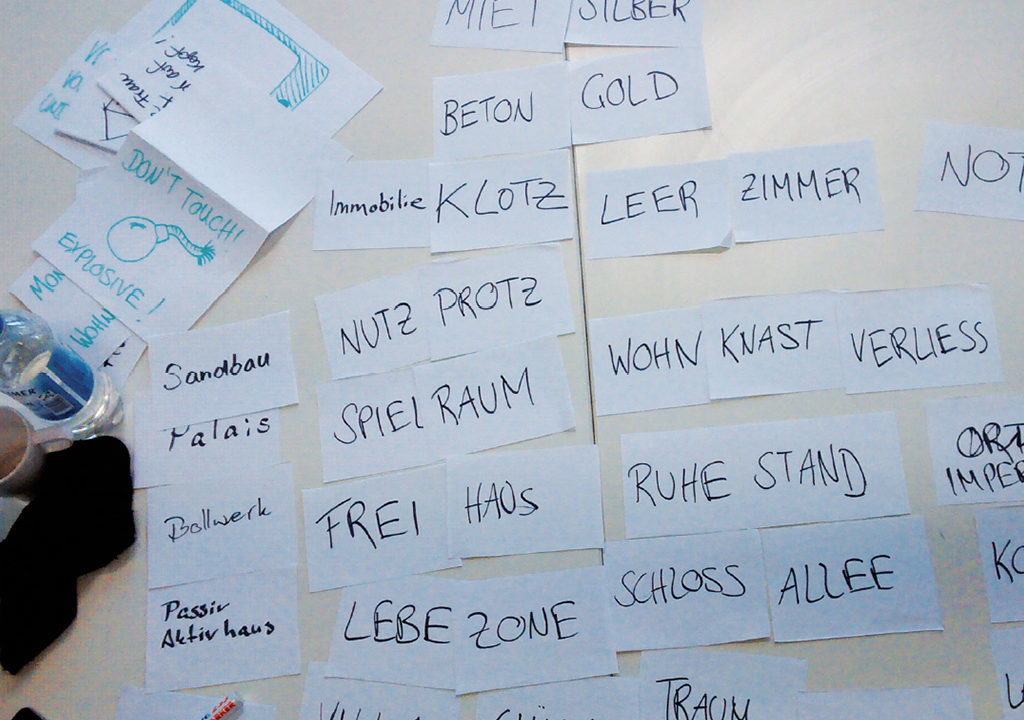 MIET SILBER
BETON GOLD
Immobilie KLOTZ
LEER ZIMMER
NOT
NUTZ PROTZ
WOHN KNAST VERLIESS
SPIEL RAUM
RUHE STAND
ORT
IMPER
FREI HAUS
SCHLOSS ALLEE
KO
LEBE ZONE
TRAUM
Sandbau
Palais
Bollwerk
Passiv
Aktivhaus
DON'T TOUCH!
EXPLOSIVE!
Frau
auf
Kopf!
WOHN